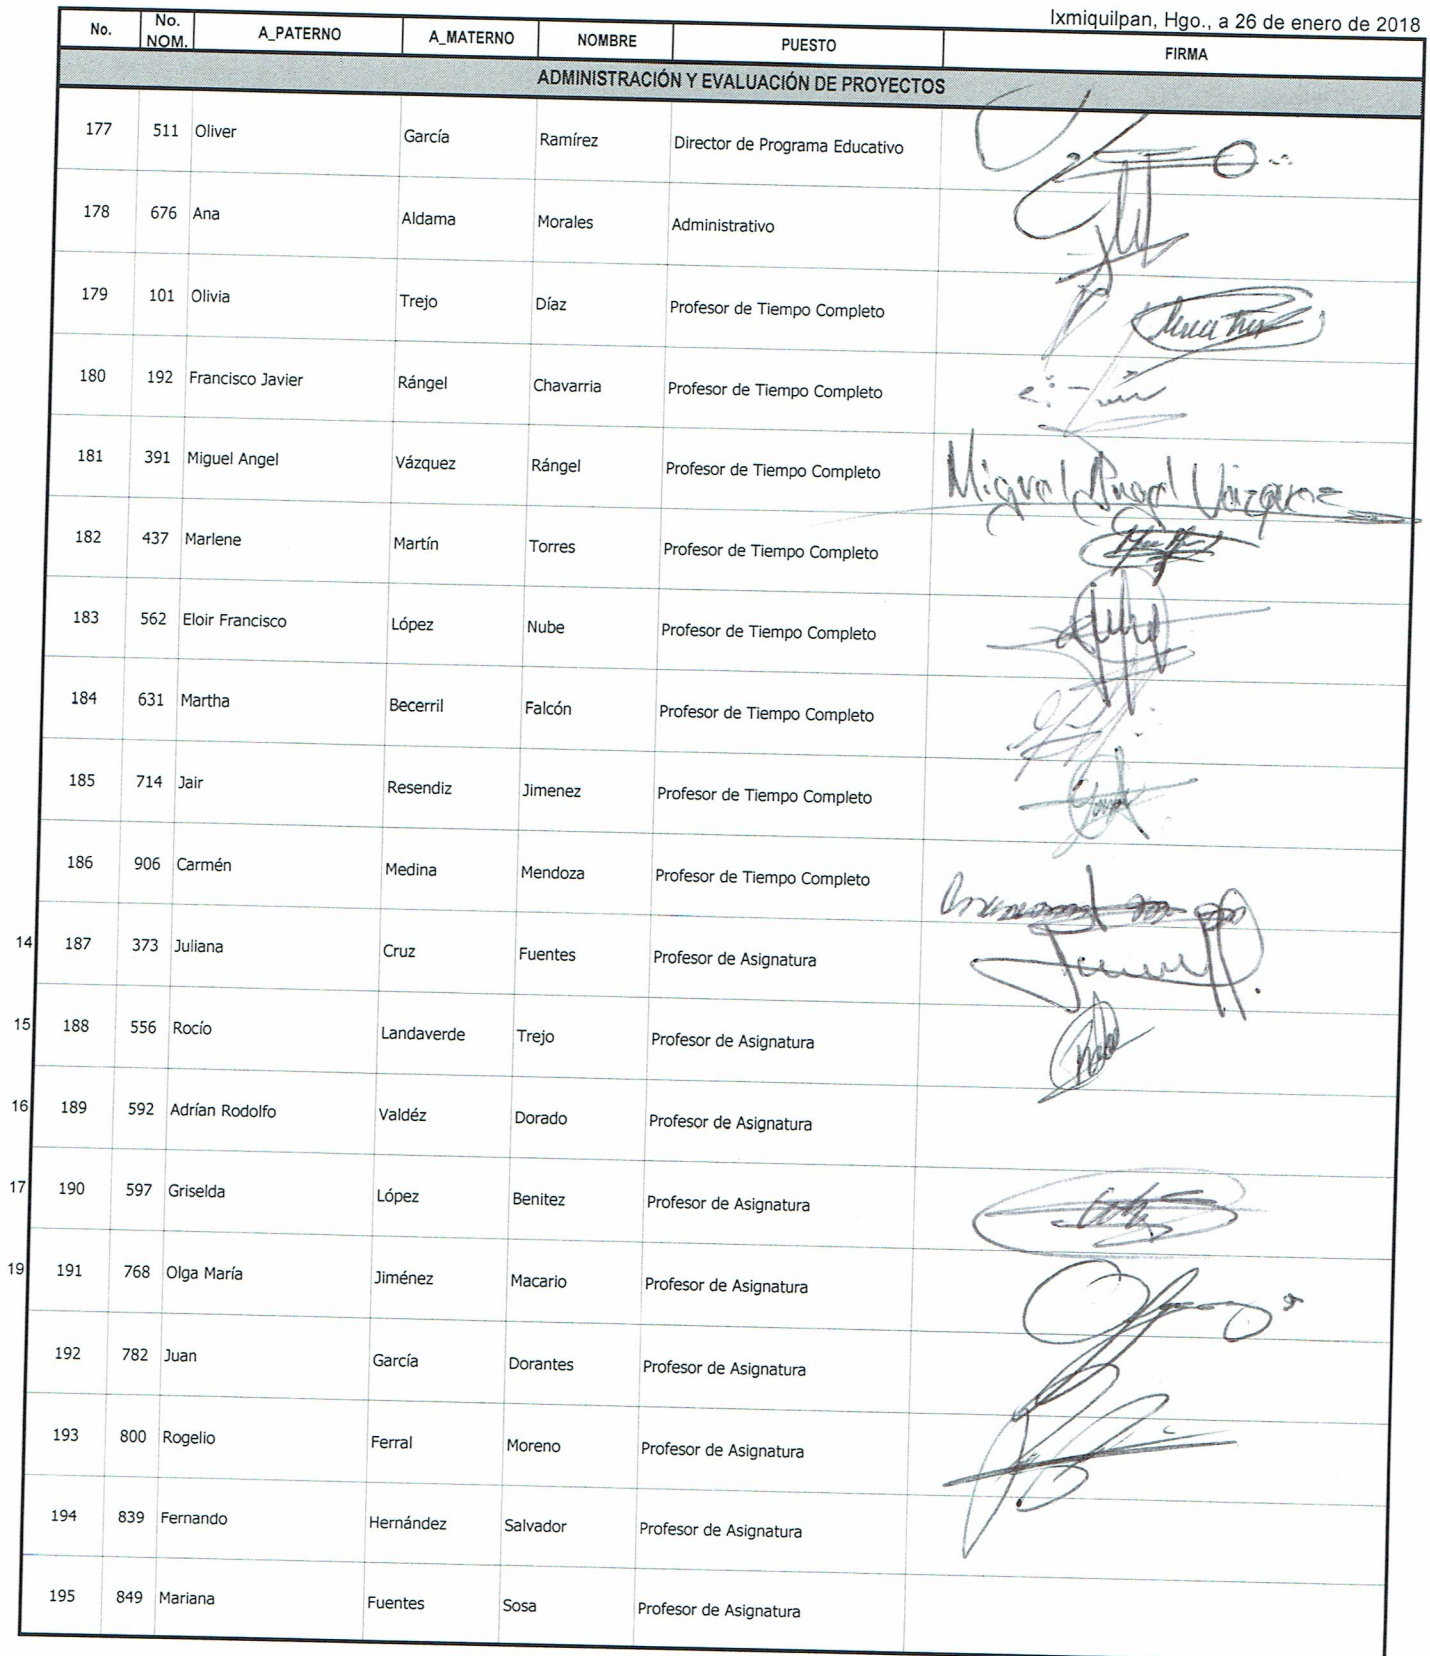 Ixmiquilpan, Hgo., a 26 de enero de 2018
No. No. NOM. A_PATERNO A_MATERNO NOMBRE PUESTO FIRMA
ADMINISTRACIÓN Y EVALUACIÓN DE PROYECTOS
177 511 Oliver García Ramírez Director de Programa Educativo
178 676 Ana Aldama Morales Administrativo
179 101 Olivia Trejo Díaz Profesor de Tiempo Completo
180 192 Francisco Javier Rángel Chavarria Profesor de Tiempo Completo
181 391 Miguel Angel Vázquez Rángel Profesor de Tiempo Completo Miguel Angel Vázquez
182 437 Marlene Martín Torres Profesor de Tiempo Completo
183 562 Eloir Francisco López Nube Profesor de Tiempo Completo
184 631 Martha Becerril Falcón Profesor de Tiempo Completo
185 714 Jair Resendiz Jimenez Profesor de Tiempo Completo
186 906 Carmén Medina Mendoza Profesor de Tiempo Completo
14 187 373 Juliana Cruz Fuentes Profesor de Asignatura
15 188 556 Rocío Landaverde Trejo Profesor de Asignatura
16 189 592 Adrían Rodolfo Valdéz Dorado Profesor de Asignatura
17 190 597 Griselda López Benitez Profesor de Asignatura
19 191 768 Olga María Jiménez Macario Profesor de Asignatura
192 782 Juan García Dorantes Profesor de Asignatura
193 800 Rogelio Ferral Moreno Profesor de Asignatura
194 839 Fernando Hernández Salvador Profesor de Asignatura
195 849 Mariana Fuentes Sosa Profesor de Asignatura